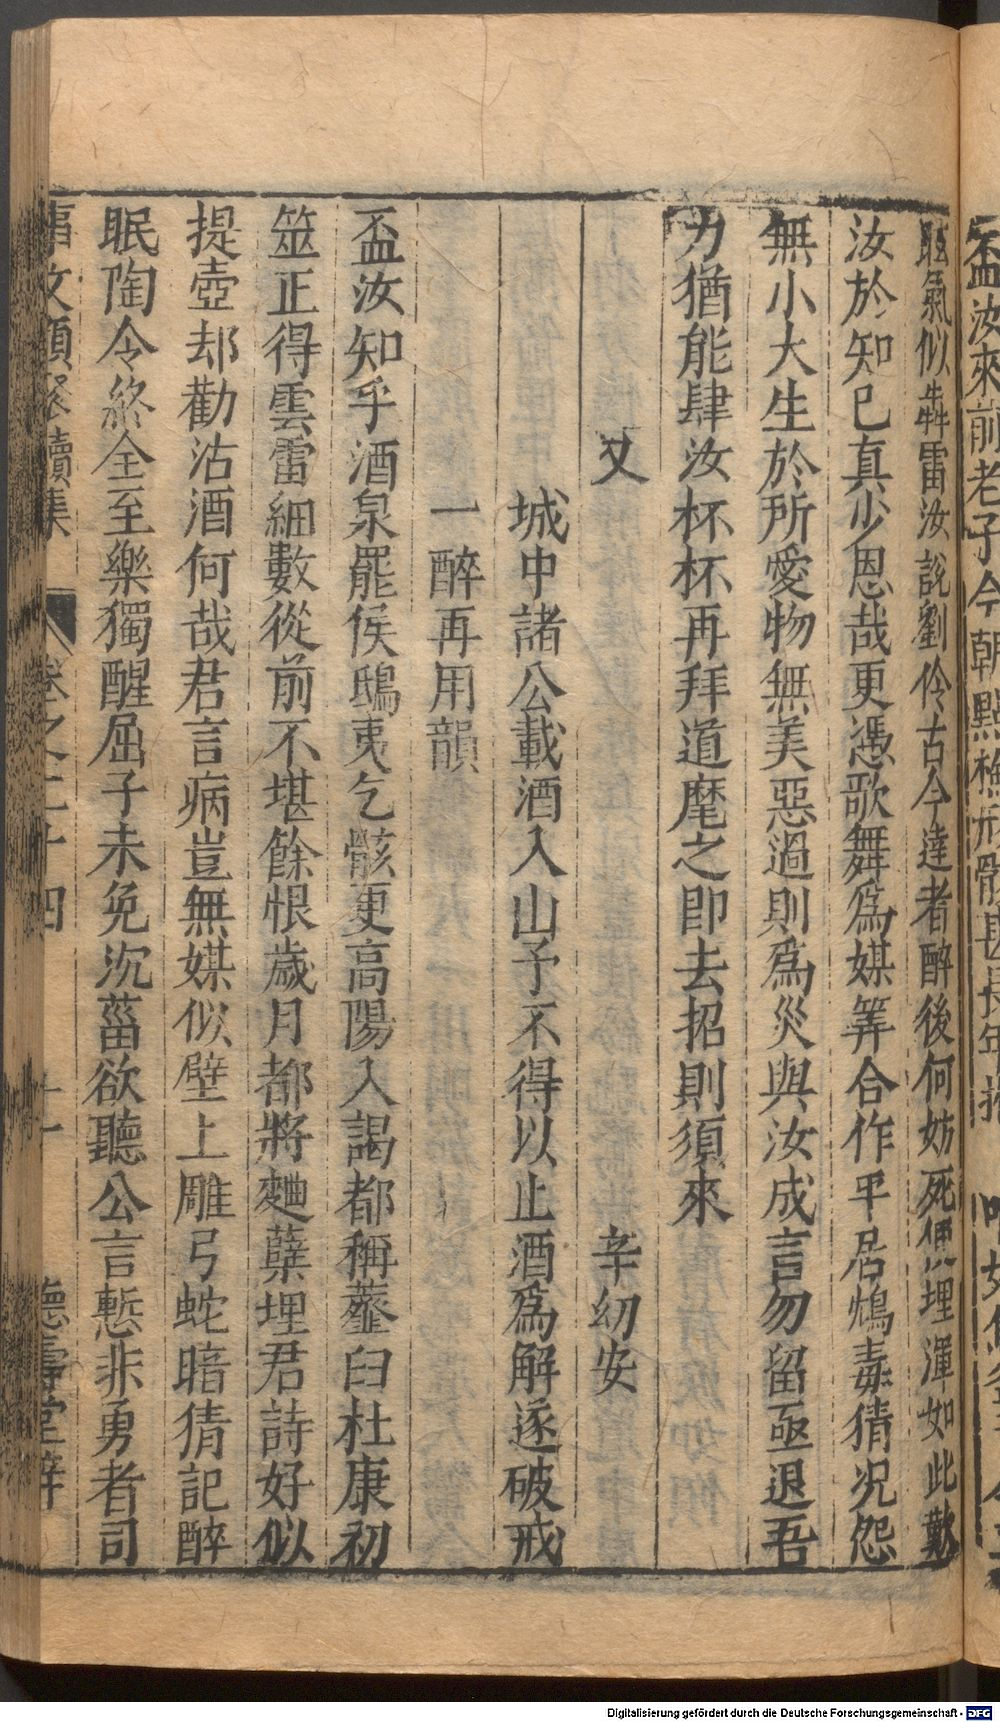 盃汝來前老子今朝點檢形骸甚長年抱
眩氣似犇雷汝説劉伶古今達者醉後何妨死便埋渾如此歎
汝於知已真少恩哉更憑歌舞爲媒筭合作平居鴆毒猜况怨
無小大生於所愛物無美惡過則爲災與汝成言勿留亟退吾
力猶能肆汝杯杯再拜道麾之即去招則須來
又 辛幼安
城中諸公載酒入山予不得以止酒爲解遂破戒
一醉再用韻
盃汝知乎酒泉罷侯鴟夷乞骸更高陽入謁都稱虀臼杜康初
筮正得雲雷細數從前不堪餘恨歲月都將麯蘖埋君詩好似
提壺却勸沽酒何哉君言病豈無媒似壁上雕弓蛇暗猜記醉
眠陶令終全至樂獨醒屈子未免沉菑欲聽公言慙非勇者司
事文類聚續集 卷之二十四 十一 德壽堂梓
Digitalisierung gefördert durch die Deutsche Forschungsgemeinschaft - DFG